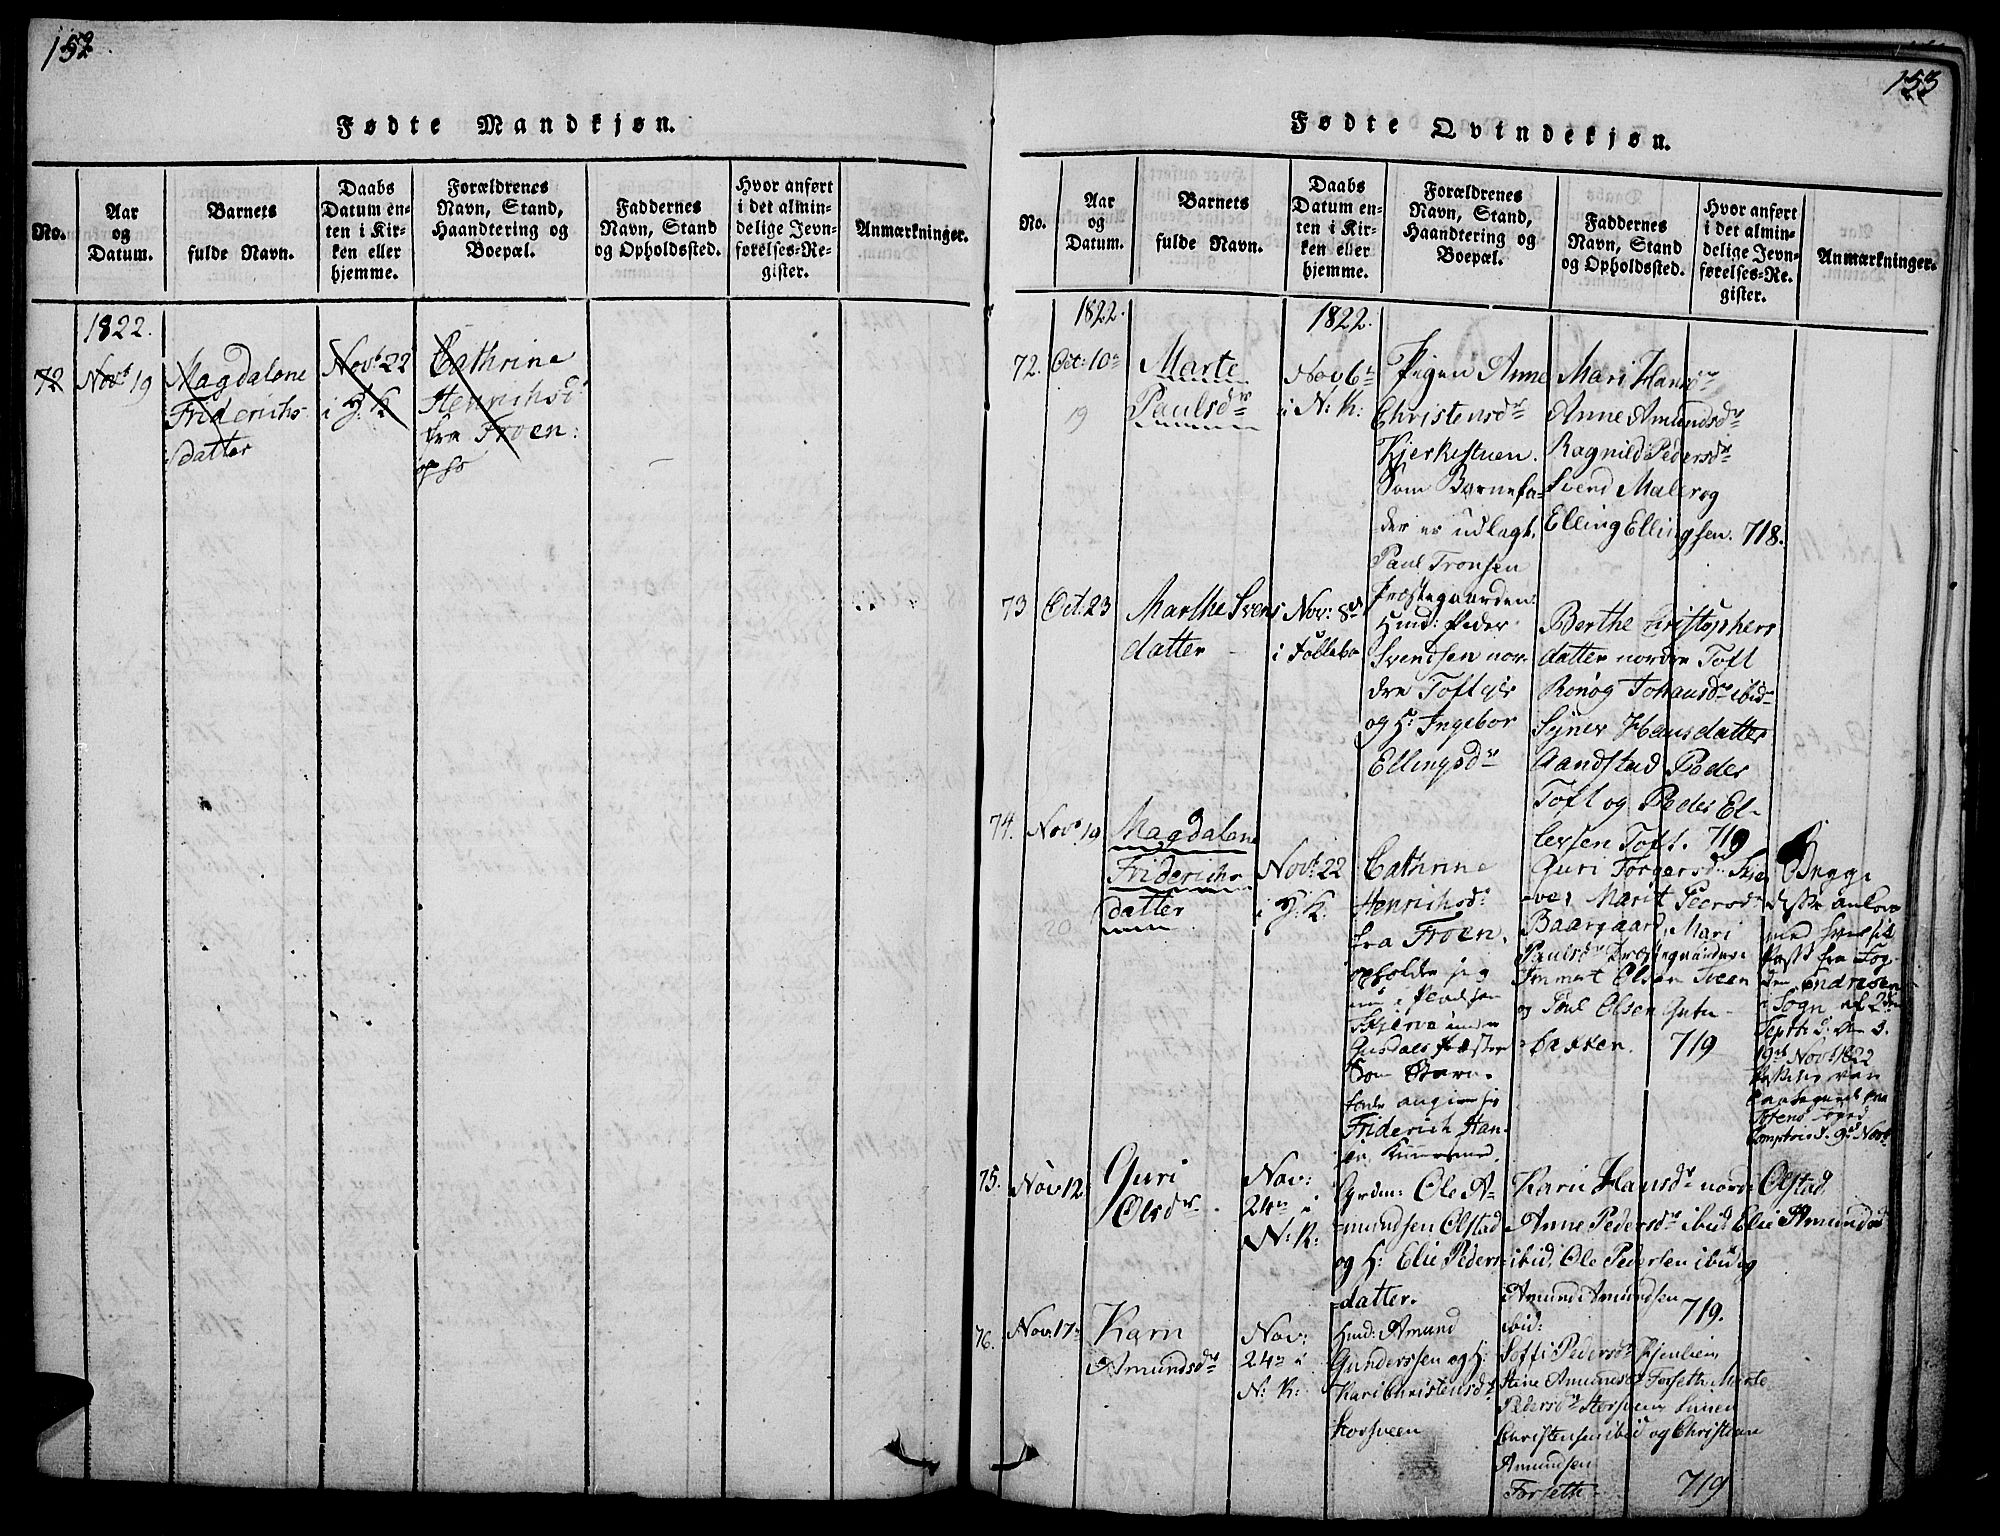 152
Fødte Mandkjøn.
No.
Aar
og
Datum.
Barnets
fulde Navn.
Daabs
Datum en-
ten i Kir-
ken eller
hjemme.
Forældrenes
Navn, Stand,
Haandtering og
Boepæl.
Faddernes
Navn, Stand
og Opholdssted.
Hvor anført
i det almin-
delige Jevn-
førelses-Re-
gister.
Anmærkninger.
1822.
72
Novb 19
Magdalene
Friderichs-
datter
Novb 22
i Ø: K
Cathrine
Henrichsd
fra Froen:
153
Fødte Qvindekjøn.
No.
Aar
og
Datum.
Barnets
fulde Navn.
Daabs
Datum en-
ten i Kir-
ken eller
hjemme.
Forældrenes
Navn, Stand,
Haandtering og
Boepæl.
Faddernes
Navn, Stand
og Opholdssted.
Hvor anført
i det almin-
delige Jevn-
førelses-Re-
gister.
Anmærkninger.
1822.
1822.
72.
Oct: 10
19
Marte
Paulsdr
Nov 6
i N: K:
Pigen Anne
Christensdr
Kjerkestuen.
Som Barnefa-
der er udlagt.
Paul Tronsen
Præstegaarden:
Mari Hansdr
Anne Amundsdr
Ragnild Pedersdr
Svend Maler og
Elling Ellingsen. 718.
73
Oct: 23
Marthe Svens
datter
Nov: 8
i Follebo
Hmd: Peder
Svendsen nor-
dre Toft
og H: Ingebor
Ellingsdr
Berthe Christophers
datter nordre Toft
Ronog Johansdr ibid
Synev Hansdatter
Aandstad Peder
Toft og Peder El-
lersen Toft. 719
74.
Novb 19
20
Magdalene
Friderichs
datter
Novb 22
i Ø: K:
Cathrine
Henrichsd
fra Froen.
opholder sig
nu i
Skjerve under
Gusdals Præster
Som Barn-
fader angives
Friderich Han-
sen
Guri Torgersd Skje
ve, Marit Peersd
Baargaard, Mari
Paulsdr Præstegaarden
Emmert Olsen Tveen
og Poul Olsen Guten-
bakken. 719
Begge
disse ankom
med
Pass fra Fog-
den Endresen
i Sogn af 2den
Septb
19de Novb 1822
75.
Nov 12
Guri
Olsdr
Nov:
24 i
N: K:
Grdm: Ole A-
mundsen Olstad
og H: Elie Peders
datter.
Kari Hansdr nord: Olstad.
Anne Pedersdr ibid Elie Amundsd
ibid, Ole Pedersen ibid og
Amund Amundsen
ibid: 719.
76.
Nov: 17
Karn
Amundsdr
Nov:
24 i
N: K:
Hmd: Amund
Gundersen og H:
Kari Christensdr
Storsveen
Soffi Pedersdr
Stine Amundsdr Forseth Marte
Pedersdr Storsveen,
Christensen ibid og Christian
Amundsen
Forseth 719